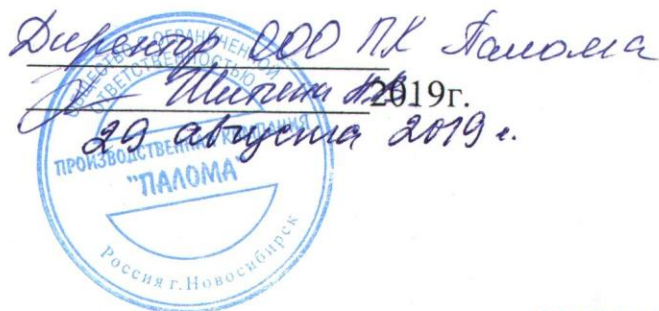 Директор ООО ПК Палома
2019г.
29 августа 2019 г.
ОБЩЕСТВО С ОГРАНИЧЕННОЙ
ОТВЕТСТВЕННОСТЬЮ
ПРОИЗВОДСТВЕННАЯ КОМПАНИЯ
"ПАЛОМА"
Россия г. Новосибирск